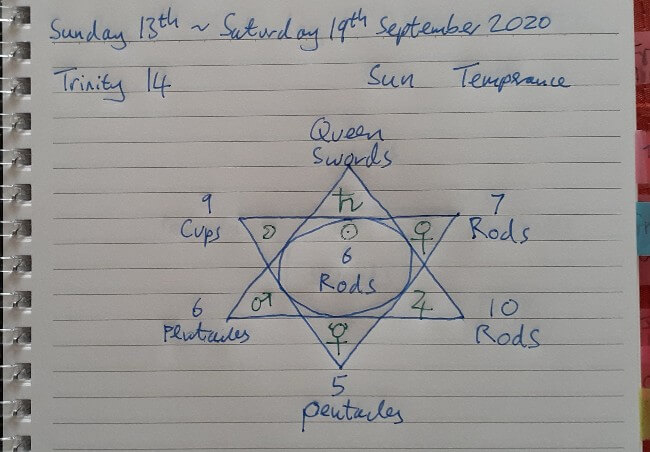 Sunday 13th ~ Saturday 19th September 2020
Trinity 14 Sun Temperance
Queen
Swords
♄
9 7
Cups ☽ ☉ ♀ Rods
6
Rods
6 ♂ ♃ 10
Pentacles ☿ Rods
5
pentacles